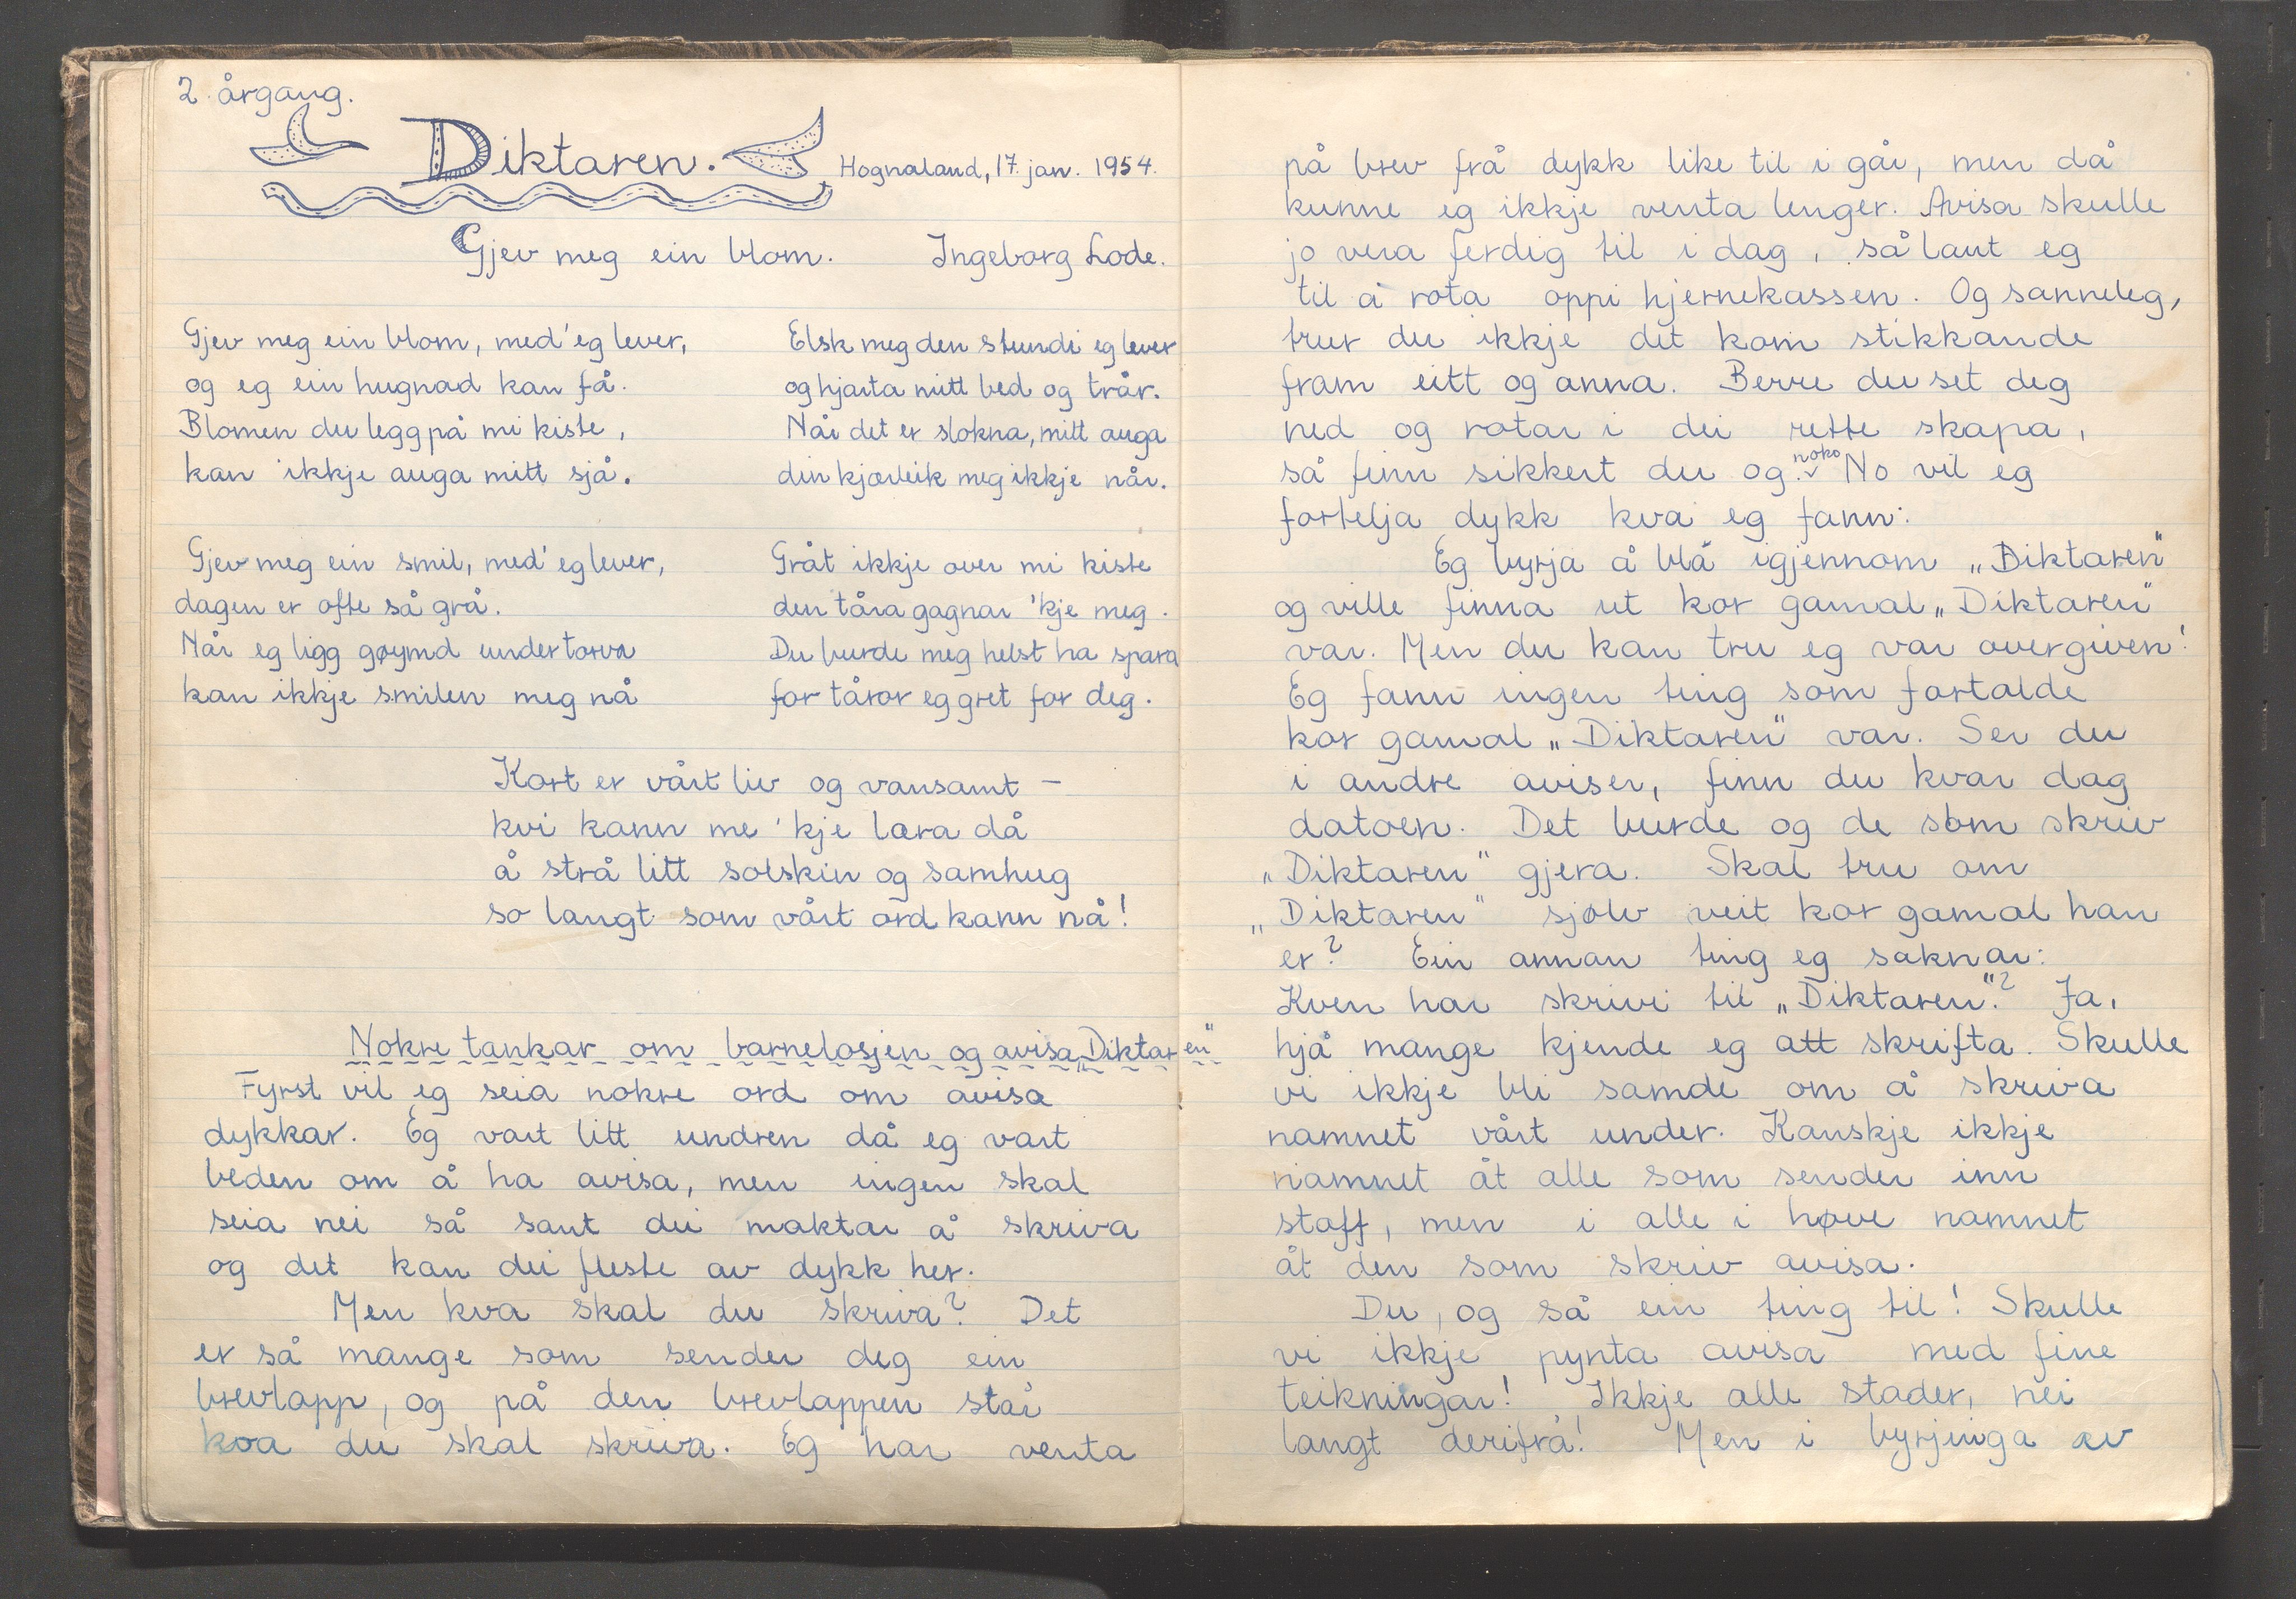 2. årgang.
Diktaren. Hognaland, 17. jan. 1954.
Gjev meg ein blom. Ingeborg Lode.
Gjev meg ein blom, med' eg lever,
og eg ein hugnad kan få.
Blomen du legg på mi kiste,
kan ikkje auga mitt sjå.
Gjev meg ein smil, med' eg lever,
dagen er ofte så grå.
Når eg ligg gøymd under torva
kan ikkje smilen meg nå
Elsk meg den stundi eg lever
og hjarta mitt bed og trår.
Når det er slokna, mitt auga
din kjærleik meg ikkje når.
Gråt ikkje over mi kiste
den tåra gagnar 'kje meg.
Du burde meg helst ha spara
for tåror eg gret for deg.
Kort er vårt liv og vansamt –
kvi kann me 'kje læra då
å strå litt solskin og samhug
so langt som vårt ord kann nå!
Nokre tankar om barnelosjen og avisa „Diktaren"
Fyrst vil eg seia nokre ord om avisa
dykkar. Eg vart litt undren då eg vart
beden om å ha avisa, men ingen skal
seia nei så sant dei maktar å skriva
og det kan dei fleste av dykk her.
Men kva skal du skriva? Det
er så mange som sender deg ein
brevlapp, og på den brevlappen står
kva du skal skriva. Eg har venta
på brev frå dykk like til i går, men då
kunne eg ikkje venta lenger. Avisa skulle
jo vera ferdig til i dag, så laut eg
til å rota oppi hjernekassen. Og sanneleg,
trur du ikkje det kom stikkande
fram eitt og anna. Berre du set deg
ned og rotar i dei rette skapa,
så finn sikkert du og noko. No vil eg
fortelja dykk kva eg fann:
Eg byrja å blå igjennom „Diktaren"
og ville finna ut kor gamal „Diktaren"
var. Men du kan tru eg var overgiven!
Eg fann ingen ting som fortalde
kor gamal „Diktaren" var. Ser du
i andre aviser, finn du kvar dag
datoen. Det burde og de som skriv
„Diktaren" gjera. Skal tru om
„Diktaren" sjølv veit kor gamal han
er? Ein annan ting eg saknar:
Kven har skrivi til „Diktaren"? Ja,
hjå mange kjende eg att skrifta. Skulle
vi ikkje bli samde om å skriva
namnet vårt under. Kanskje ikkje
namnet åt alle som sender inn
stoff, men i alle i høve namnet
åt den som skriv avisa.
Du, og så ein ting til! Skulle
vi ikkje pynta avisa med fine
teikningar! Ikkje alle stader, nei
langt derifrå! Men i byrjinga av